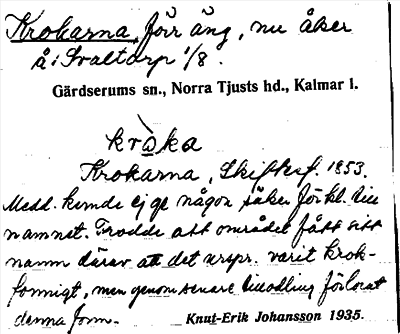 Krokarna, förr äng, nu åker
å i Svaltorp 1/8.
Gärdserums sn., Norra Tjusts hd., Kalmar l.
kròka
Krokarna, Skiftesf. 1853.
Medd. kunde ej ge någon säker förkl. till
namnet. Trodde att området fått sitt
namn därav att det urspr. varit krok-
formigt, men genom senare tillodling förlorat
denna form. Knut-Erik Johansson 1935.